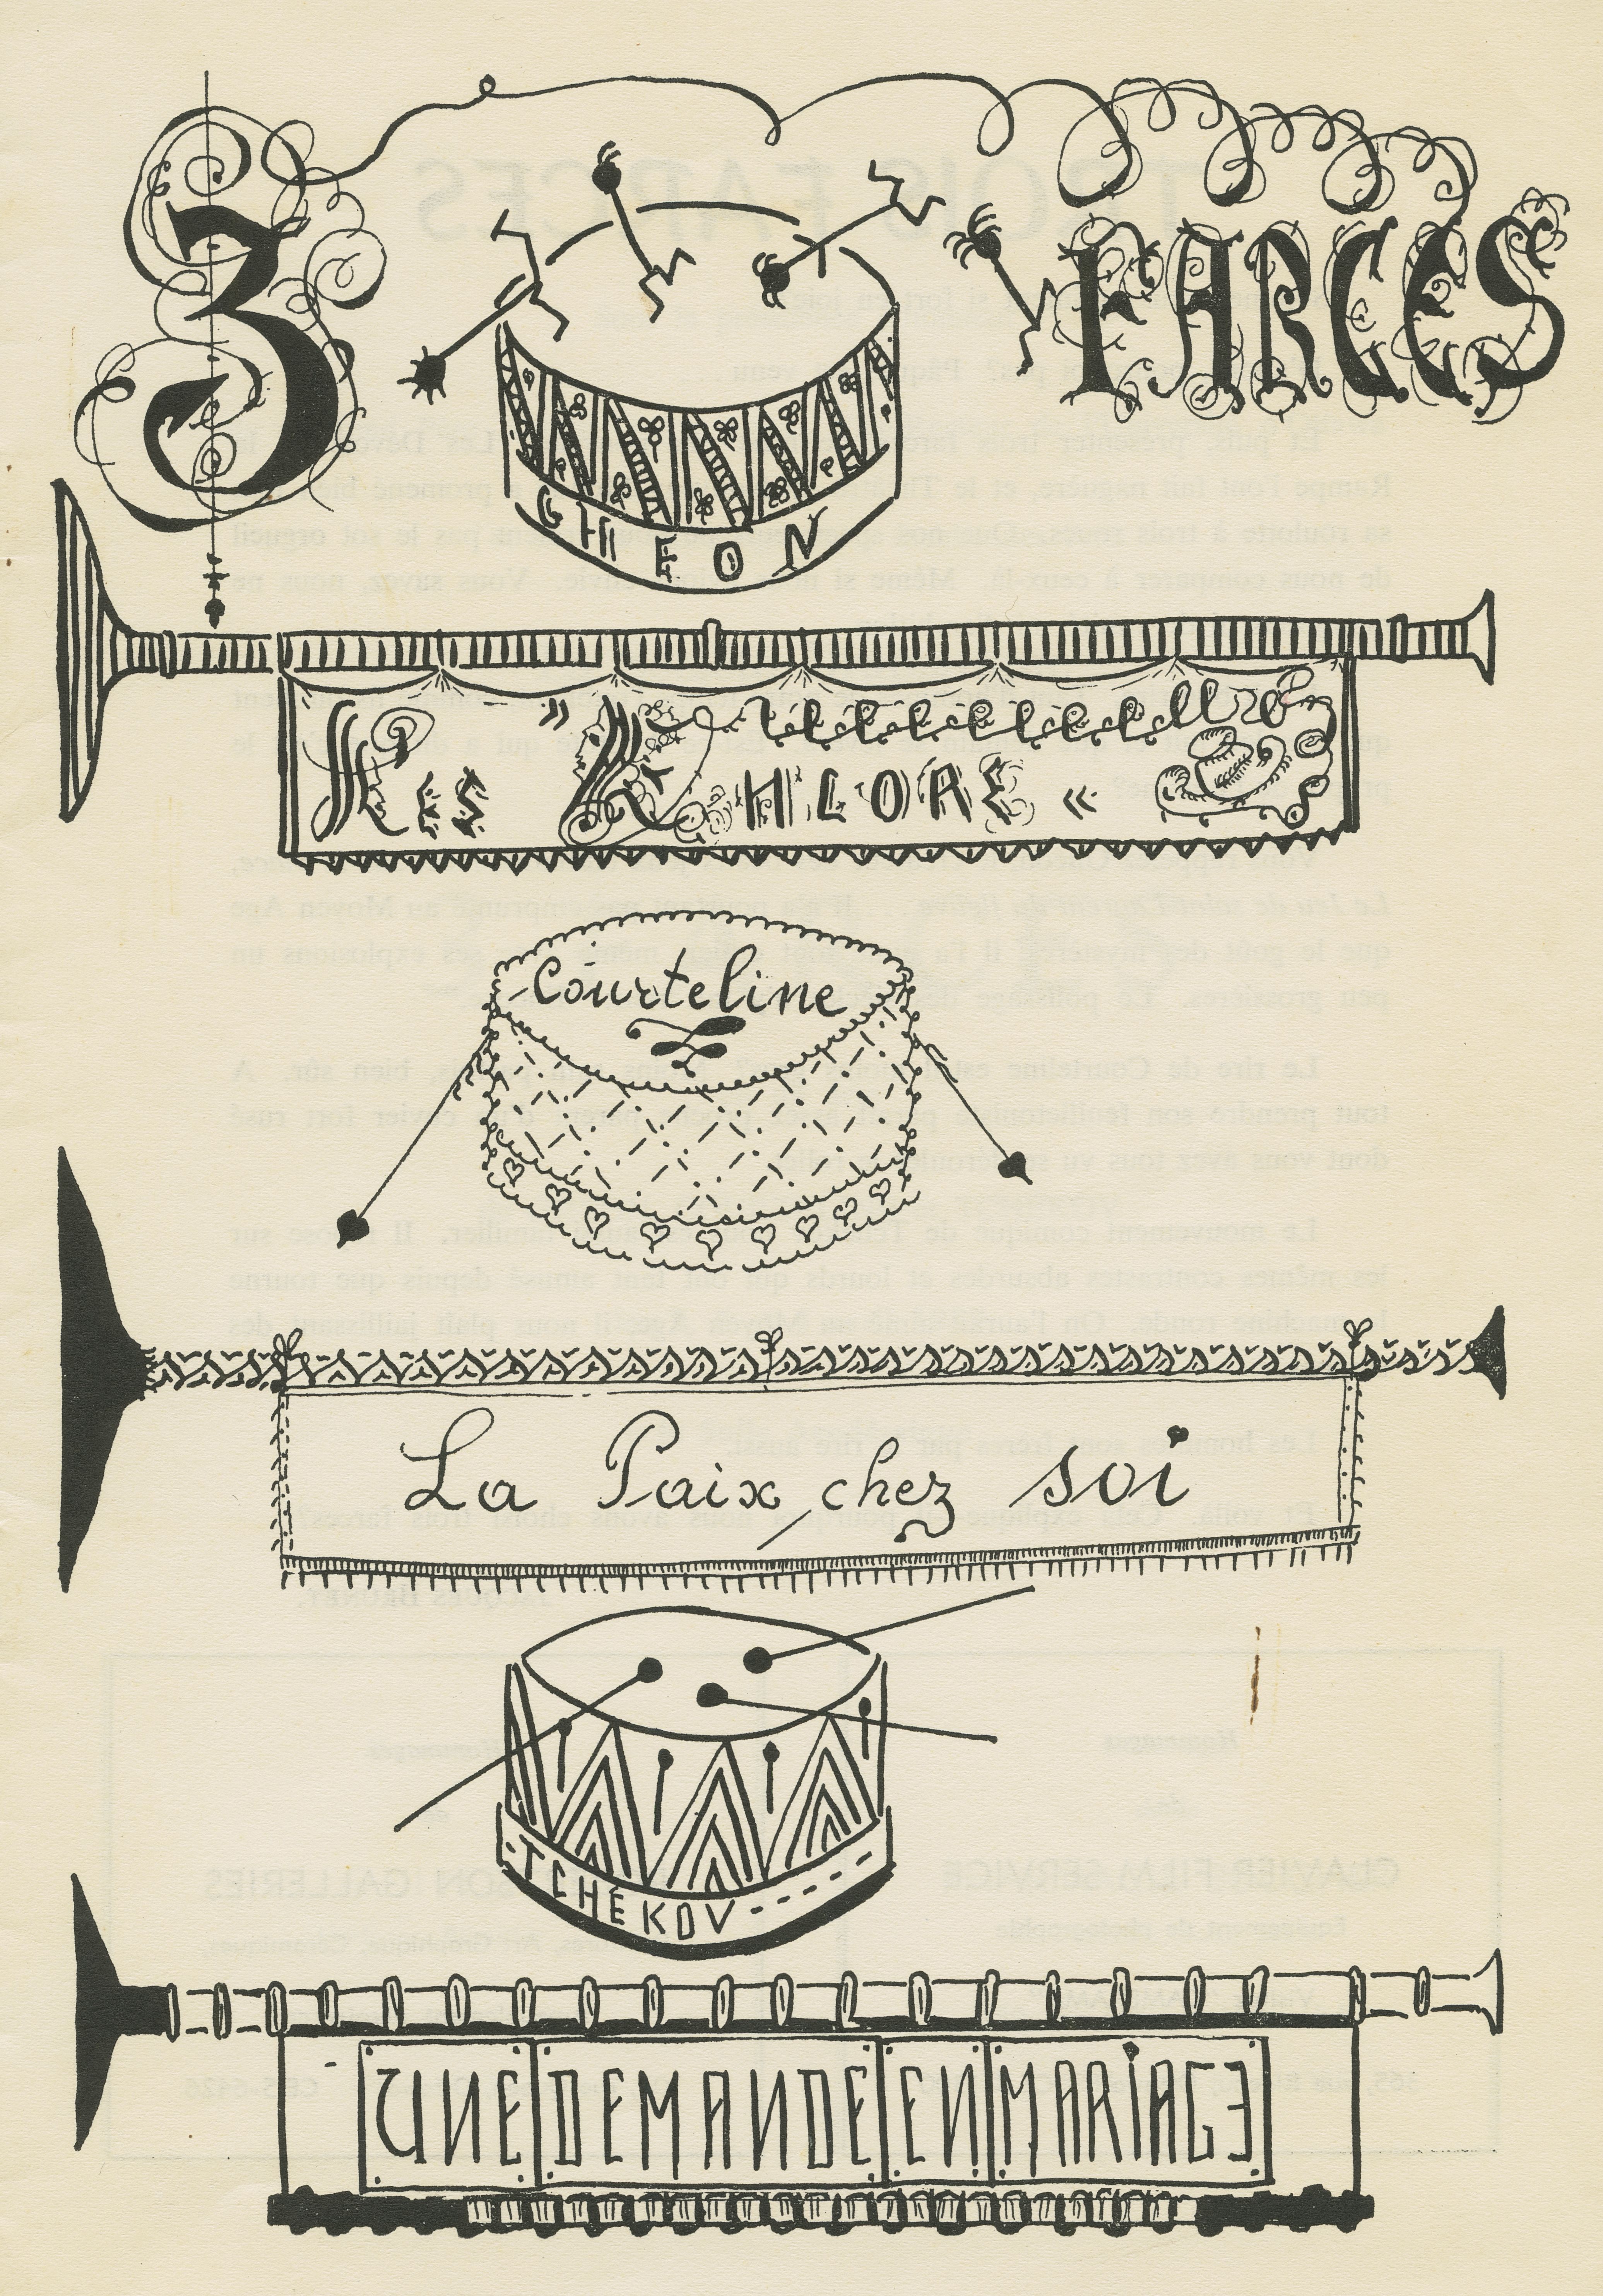 3 FARCES
GHEON
Les » «
Courteline
La Paix chez soi
TCHÉKOV
UNE DEMANDE EN MARIAGE